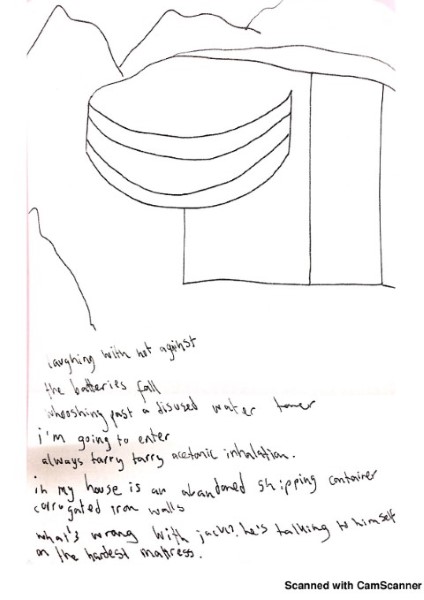 laughing with not against
the batteries fall
whooshing past a disused water tower
i'm going to enter
always tarry tarry acetonic inhalation.
in my house is an abandoned shipping container
corrugated iron walls
what's wrong with jack? he's talking to himself
on the hardest mattress.
Scanned with CamScanner